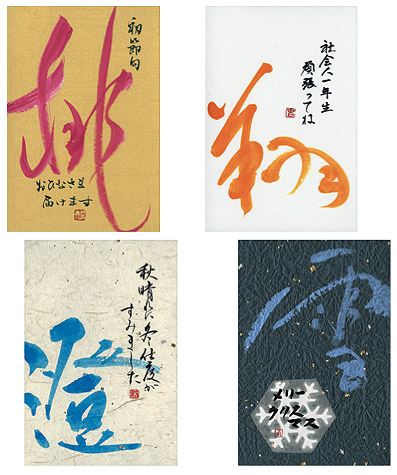 初節句
桃
おひなさま
届けます
社会人一年生
頑張ってね
翔
秋晴れに冬仕度が
すみました
澄
雪
メリー
クリス
マス